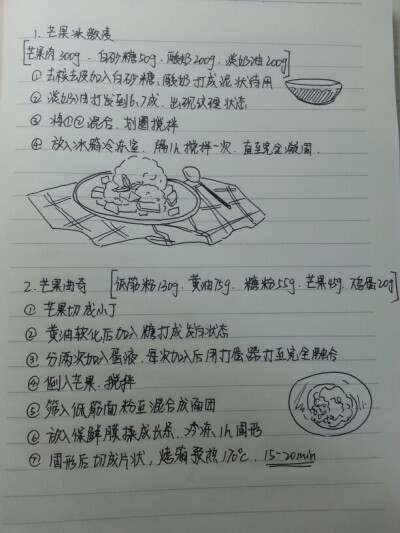 1. 芒果冰激凌
[芒果肉300g、白砂糖50g、酸奶200g、淡奶油200g]
① 去核去皮加入白砂糖、酸奶打成泥状待用
② 淡奶油打发到6,7成,出现纹理状态
③ 将①②混合,划圈搅拌
④ 放入冰箱冷冻室,隔1h搅拌一次,直至完全凝固.
2. 芒果曲奇 [低筋粉130g、黄油75g、糖粉55g、芒果45g、鸡蛋20g]
① 芒果切成小丁
② 黄油软化后加入糖打成发白状态
③ 分两次加入蛋液,每次加入后用打蛋器打至完全融合
④ 倒入芒果,搅拌
⑤ 筛入低筋面粉至混合成面团
⑥ 放入保鲜膜揉成长条,冷冻1h固形
⑦ 固形后切成片状,烤箱预热170℃,15-20min